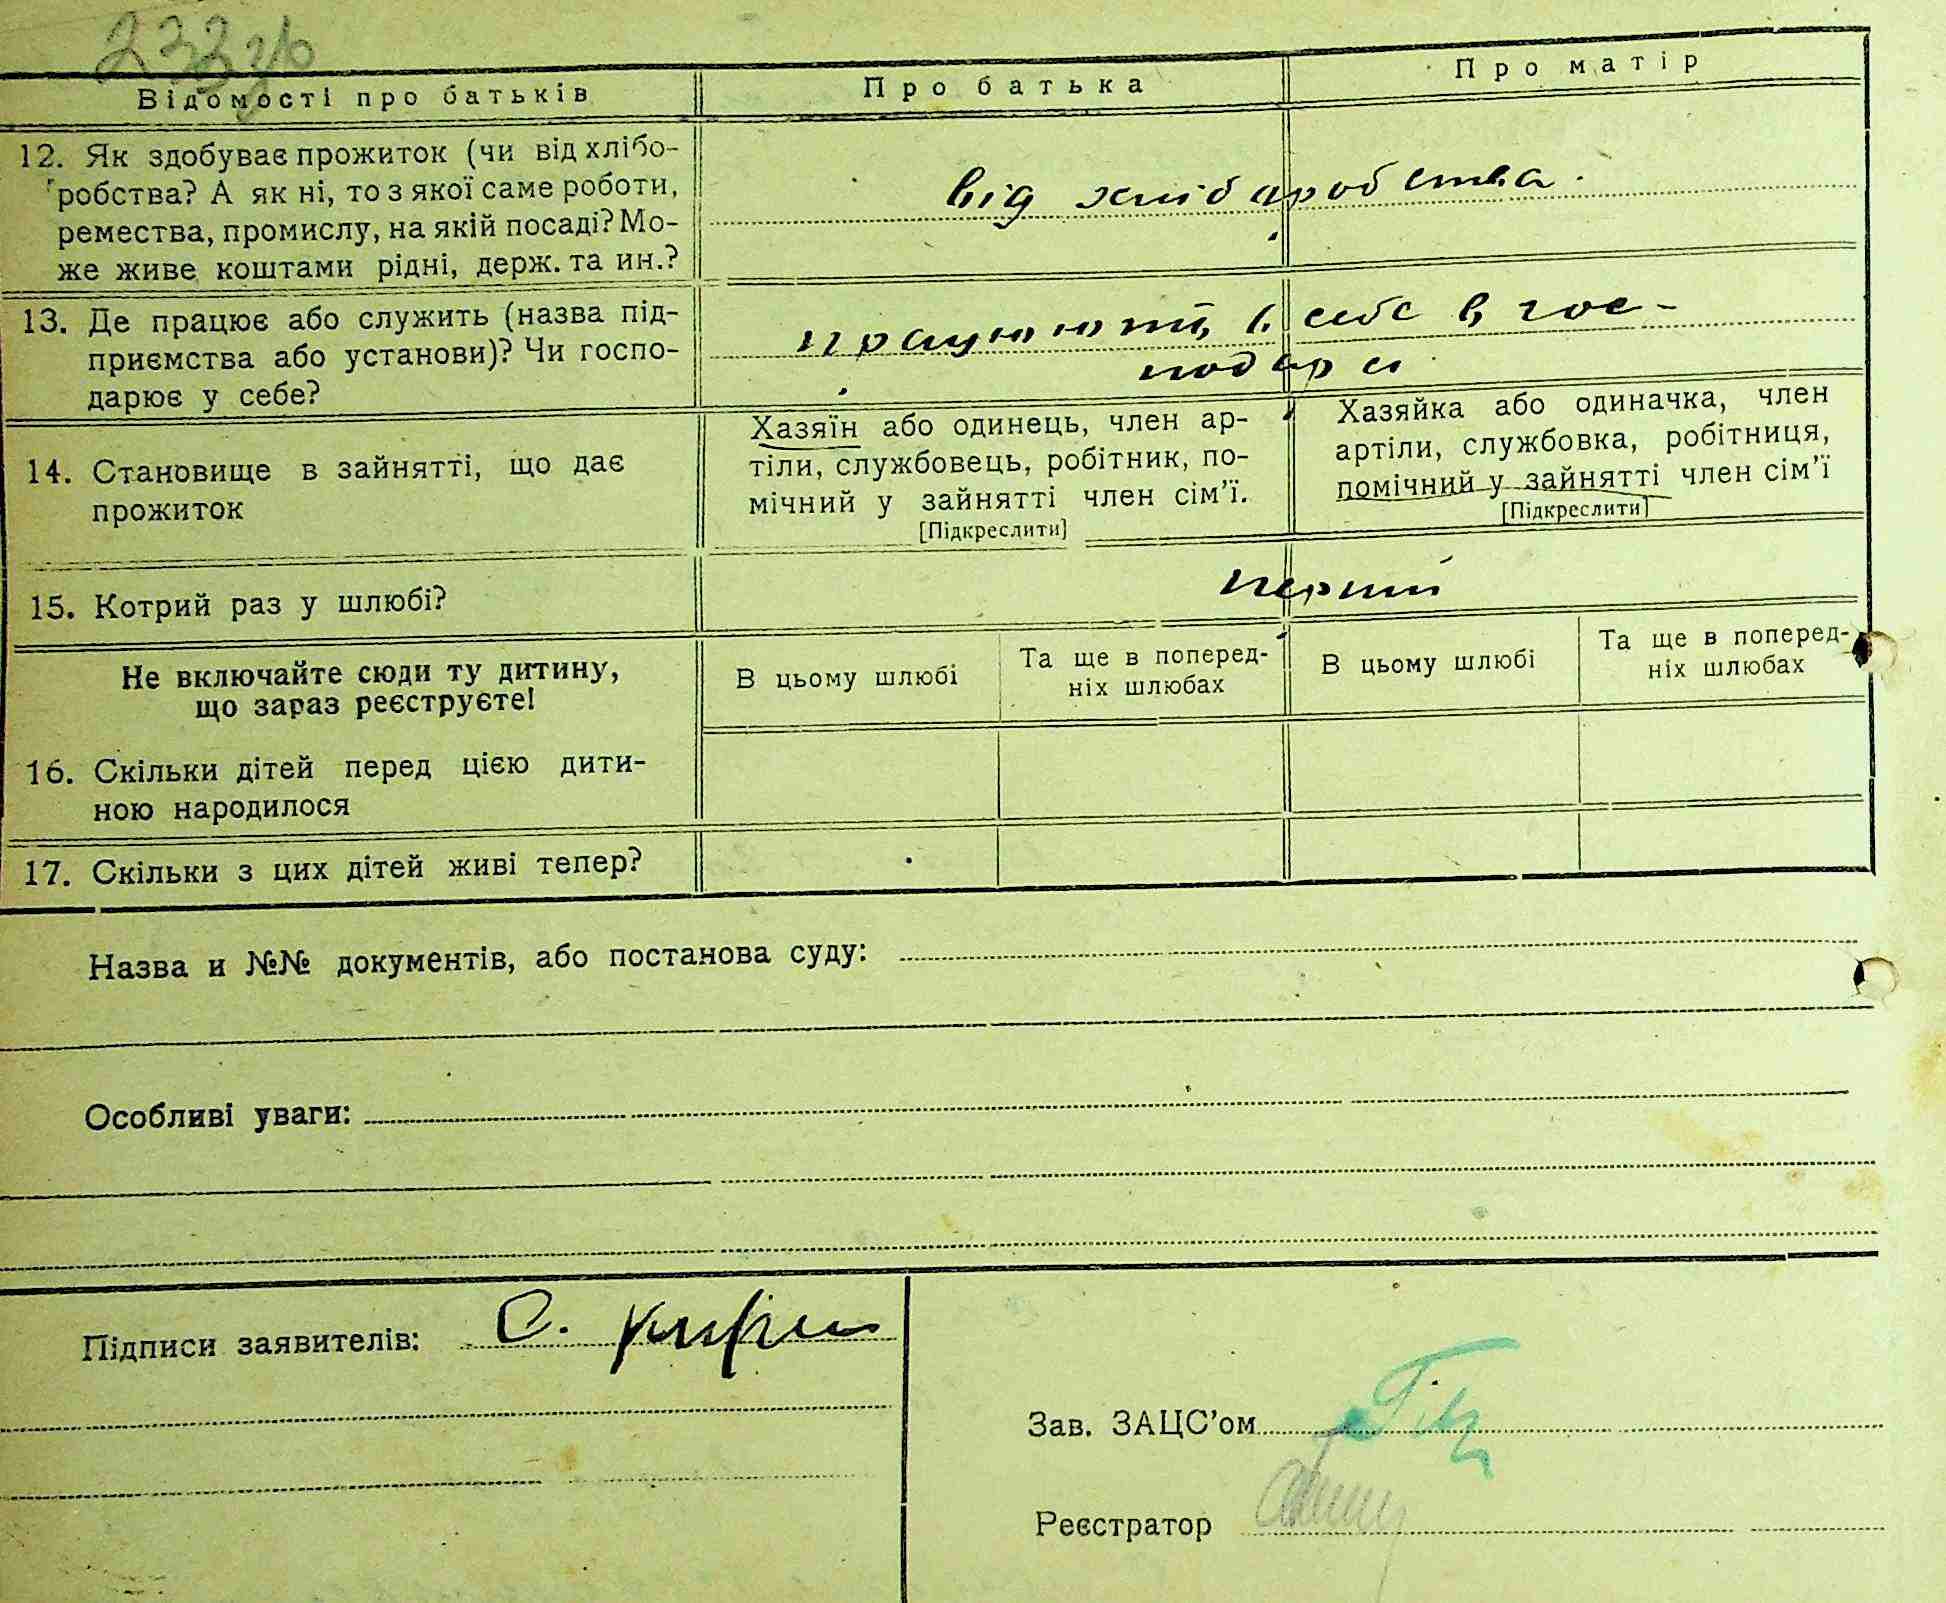 233 зв
Відомості про батьків
Про батька
Про матір
12. Як здобуває прожиток (чи від хлібо-
робства? А як ні, то з якої саме роботи,
ремества, промислу, на якій посаді? Мо-
же живе коштами рідні, держ. та ин.?
від хлібаробства.
13. Де працює або служить (назва під-
приємства або установи)? Чи госпо-
дарює у себе?
працюють в себе в гос-
подарсі
14. Становище в зайнятті, що дає
прожиток
Хазяїн або одинець, член ар-
тіли, службовець, робітник, по-
мічний у зайнятті член сім'ї.
[Підкреслити]
Хазяйка або одиначка, член
артіли, службовка, робітниця,
помічний у зайнятті член сім'ї
[Підкреслити]
15. Котрий раз у шлюбі?
перший
Не включайте сюди ту дитину,
що зараз реєструєте!
В цьому шлюбі
Та ще в поперед-
ніх шлюбах
В цьому шлюбі
Та ще в поперед-
ніх шлюбах
16. Скільки дітей перед цією дити-
ною народилося
17. Скільки з цих дітей живі тепер?
Назва и №№ документів, або постанова суду:
Особливі уваги:
Підписи заявителів: С.
Зав. ЗАЦС'ом
Реєстратор